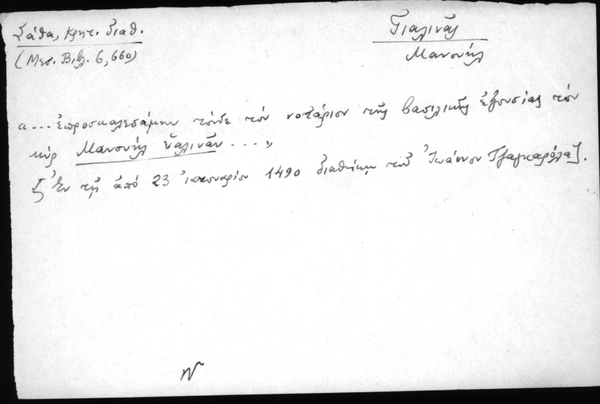 Σάθα, Κρητ. διαθ.
(Μεσ. Βιβλ. 6, 660)
Γιαλινᾶς
Μανουήλ
«... ἐπροσκαλεσάμην τόνδε τὸν νοτάριον τῆς βασιλικῆς ἐξουσίας τὸν
κὺρ Μανουὴλ Γαλινᾶν ...»
[Ἐν τῇ ἀπὸ 23 ὀκτωβρίου 1490 διαθήκῃ τοῦ Ἰωάννου Τζαγκαρόλα].